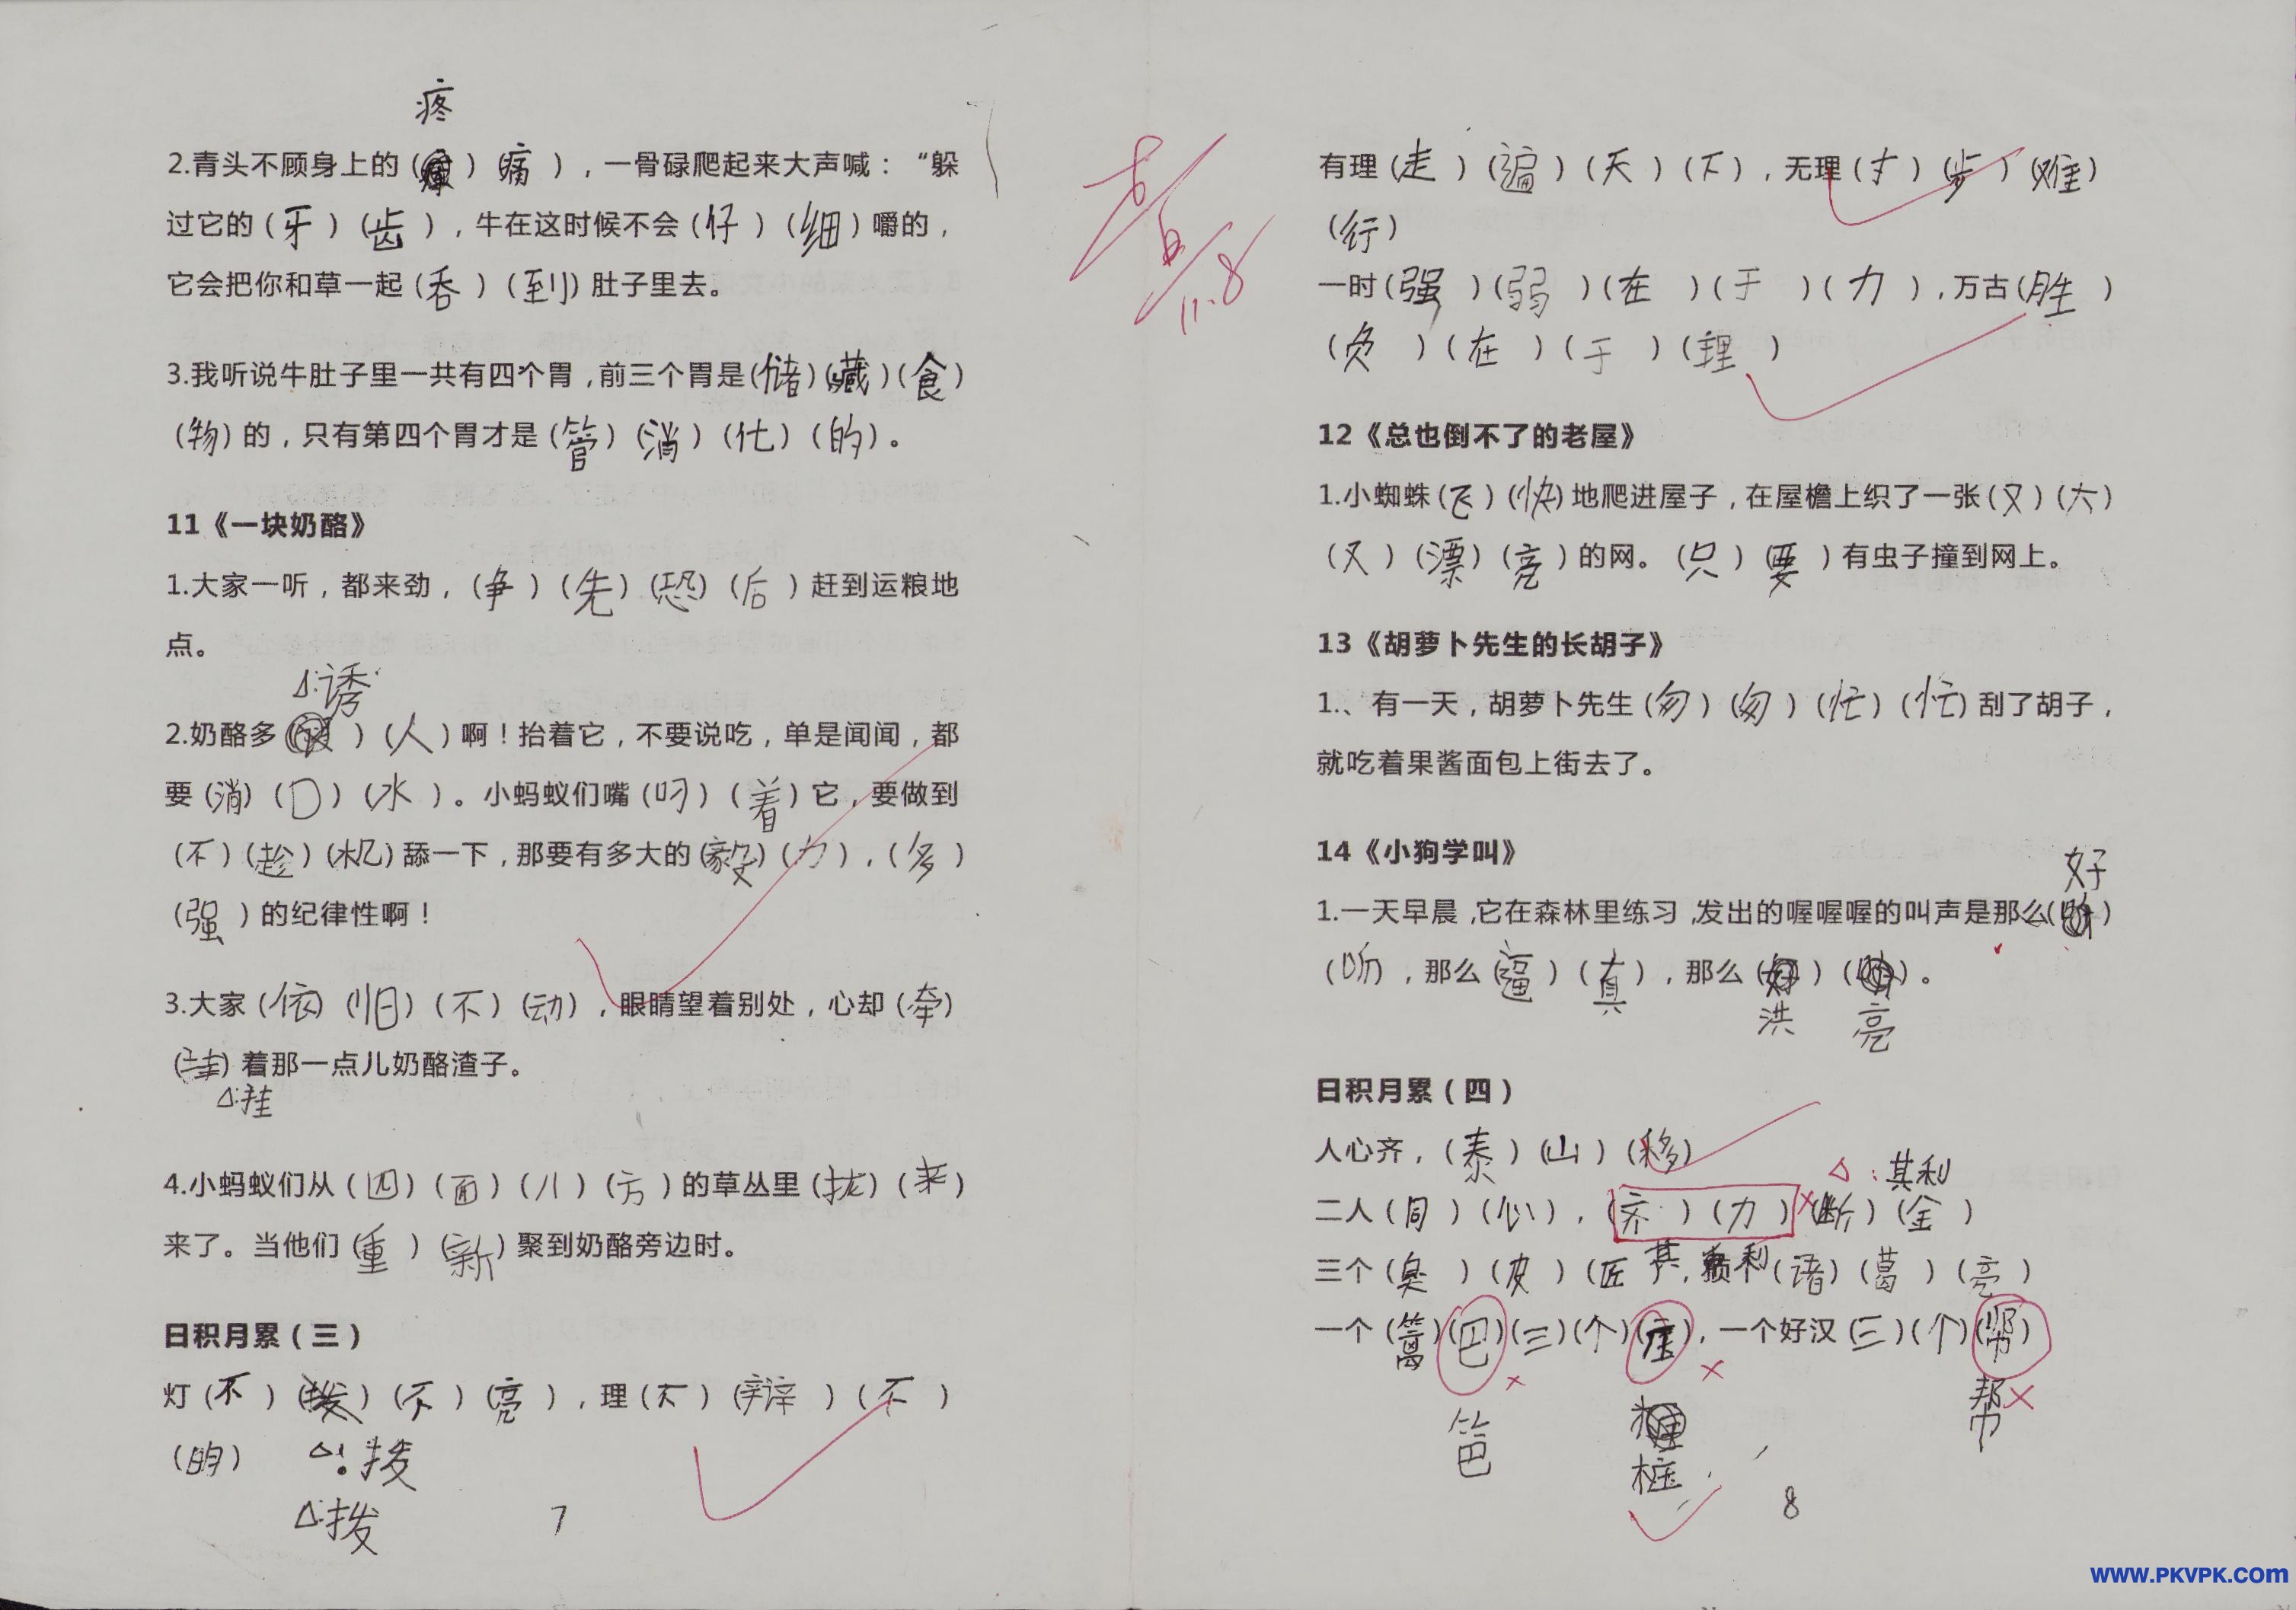 疼
2.青头不顾身上的( )(痛),一骨碌爬起来大声喊:“躲
过它的(牙)(齿),牛在这时候不会(仔)(细)嚼的,
它会把你和草一起(吞)(到)肚子里去。
3.我听说牛肚子里一共有四个胃,前三个胃是(储)(藏)(食)
(物)的,只有第四个胃才是(管)(消)(化)(的)。
11《一块奶酪》
1.大家一听,都来劲,(争)(先)(恐)(后)赶到运粮地
点。
△:诱
2.奶酪多( )(人)啊!抬着它,不要说吃,单是闻闻,都
要(消)(口)(水)。小蚂蚁们嘴(叼)(着)它,要做到
(不)(趁)(机)舔一下,那要有多大的(毅)(力),(多)
(强)的纪律性啊!
3.大家(依)(旧)(不)(动),眼睛望着别处,心却(牵)
( )着那一点儿奶酪渣子。
△:挂
4.小蚂蚁们从(四)(面)(八)(方)的草丛里(拢)(来)
来了。当他们(重)(新)聚到奶酪旁边时。
日积月累(三)
灯(不)( )(不)(亮),理(不)(辩)(不)
(明)
△:拨
△:拨
7
古
11.8
有理(走)(遍)(天)(下),无理(寸)(步)(难)
(行)
一时(强)(弱)(在)(于)(力),万古(胜)
(负)(在)(于)(理)
12《总也倒不了的老屋》
1.小蜘蛛(飞)(快)地爬进屋子,在屋檐上织了一张(又)(大)
(又)(漂)(亮)的网。(只)(要)有虫子撞到网上。
13《胡萝卜先生的长胡子》
1.、有一天,胡萝卜先生(匆)(匆)(忙)(忙)刮了胡子,
就吃着果酱面包上街去了。
14《小狗学叫》
好
1.一天早晨,它在森林里练习,发出的喔喔喔的叫声是那么( )
(听),那么(逼)(真),那么( )( )。
洪 亮
日积月累(四)
人心齐,(泰)(山)(移)
△:其利
二人(同)(心),(齐)(力)(断)(金)
其 利
三个(臭)(皮)(匠),顶个(诸)(葛)(亮)
一个(篱)(巴)(三)(个)( ),一个好汉(三)(个)(帮)
笆 桩 帮
8
www.PKVPK.com